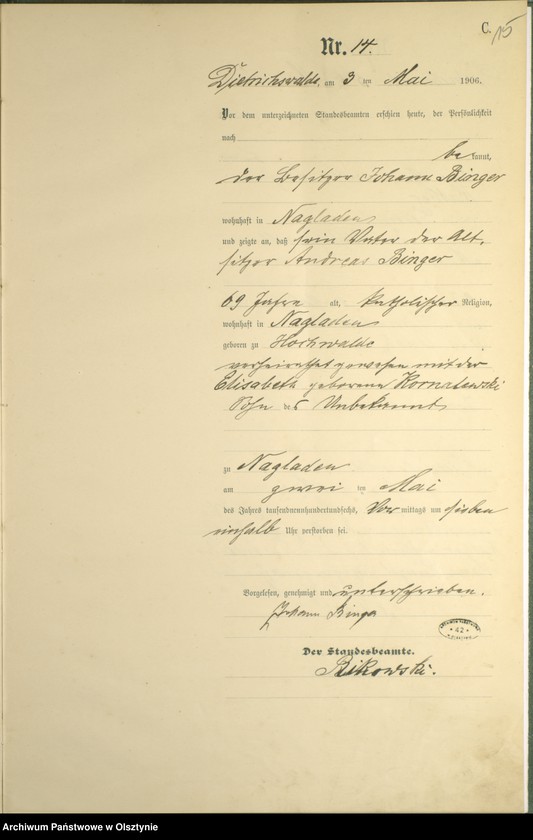 C.
15
Nr. 14.
Dietrichswalde, am 3 ten Mai 1906.
Vor dem unterzeichneten Standesbeamten erschien heute, der Persönlichkeit
nach
be kannt,
der Besitzer Johann Binger
wohnhaft in Nagladen
und zeigte an, daß sein Vater der Alt-
sitzer Andreas Binger
69 Jahre alt, katholischer Religion,
wohnhaft in Nagladen
geboren zu Hochwalde
verheirathet gewesen mit der
Elisabeth geborene Kornalewski
Sohn des Unbekannt
zu Nagladen
am zwei ten Mai
des Jahres tausendneunhundertundsechs, Vor mittags um sieben
einhalb Uhr verstorben sei.
Vorgelesen, genehmigt und unterschrieben.
Johann Binger
Der Standesbeamte.
Bikowski.
* 42 *
Archiwum Państwowe w Olsztynie